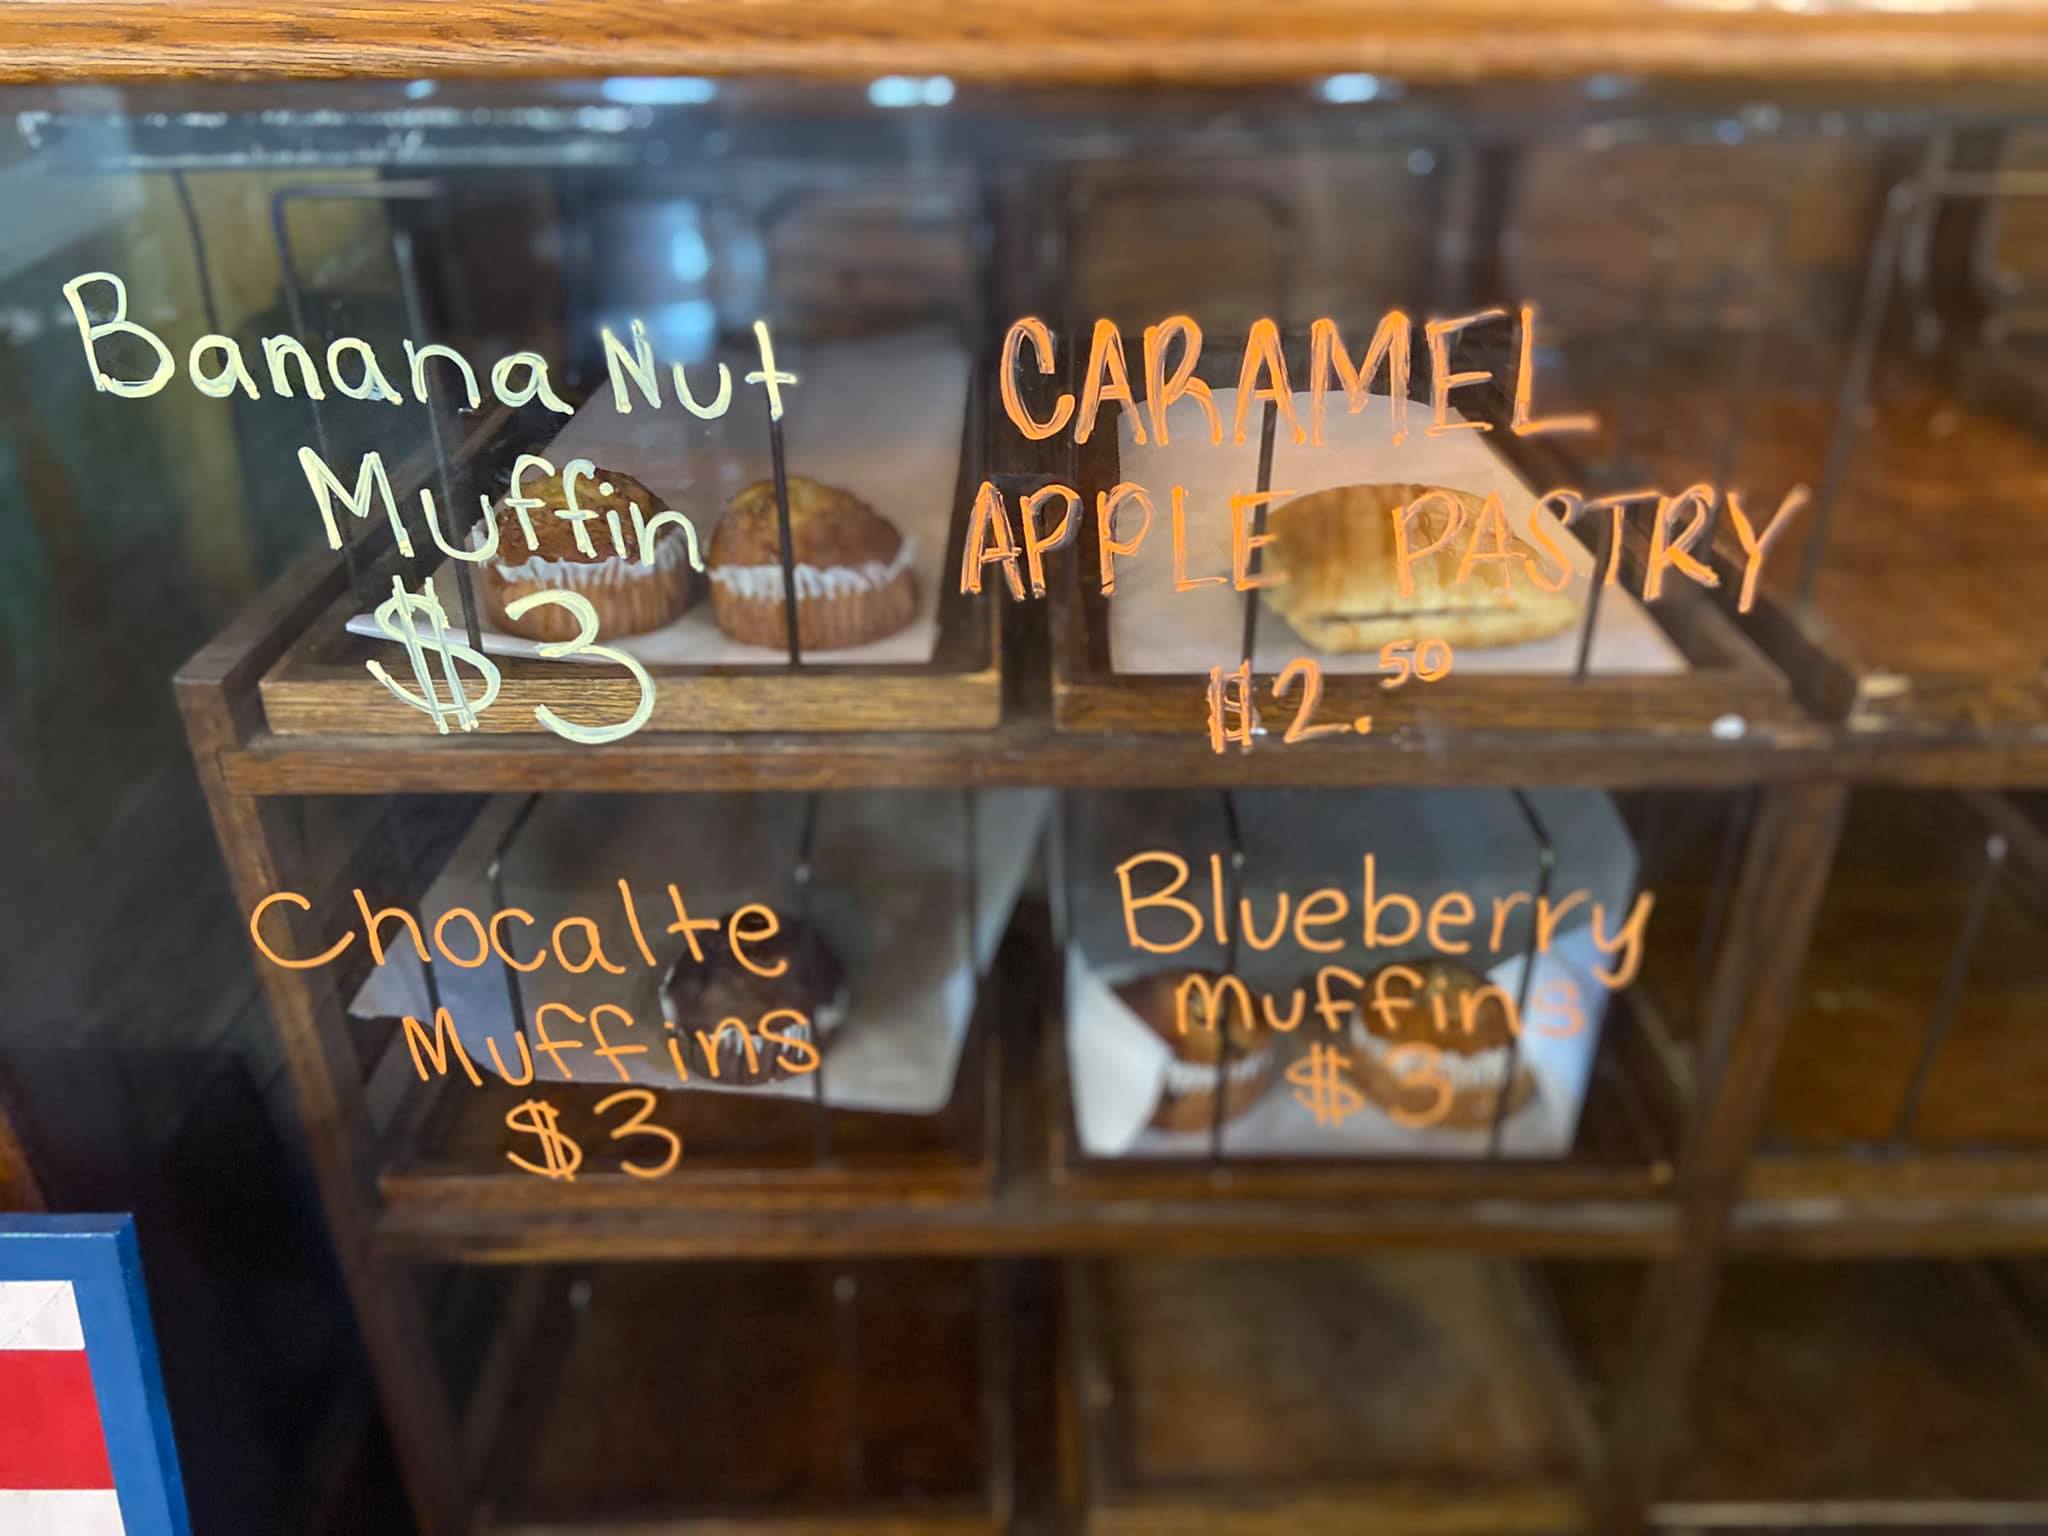 Banana Nut
Muffin
$3
CARAMEL
APPLE PASTRY
$2.50
Chocalte
Muffins
$3
Blueberry
Muffins
$3